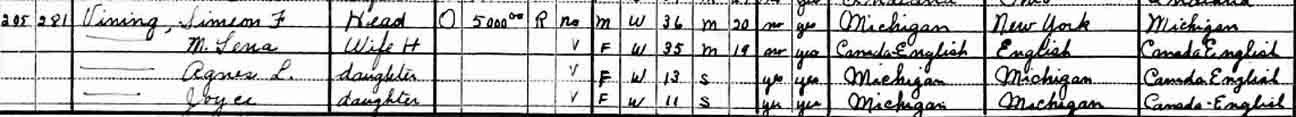 205 281 Vining, Simeon F Head O 5000 00 R no M W 36 M 20 no yes Michigan New York Michigan
M. Lena Wife H V F W 35 M 19 no yes Canada-English English Canada English
Agnes L. daughter V F W 13 S yes yes Michigan Michigan Canada English
Joyce daughter V F W 11 S yes yes Michigan Michigan Canada-English